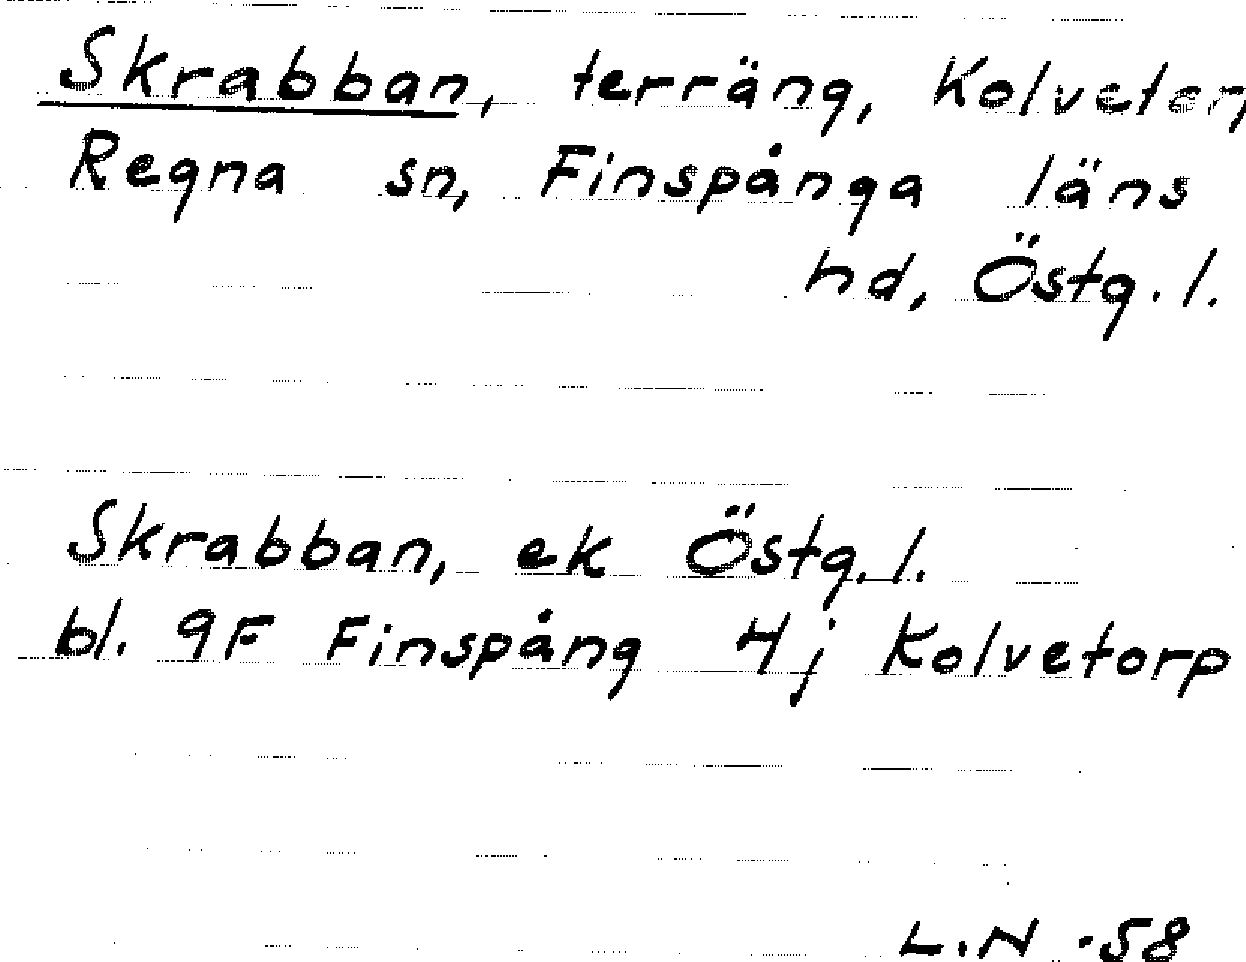 Skrabban, terräng, Kolvetorp
Regna sn, Finspånga läns
hd, Östg. l.
Skrabban, ek Östg. l.
bl. 9F Finspång 4j Kolvetorp
L.N -58